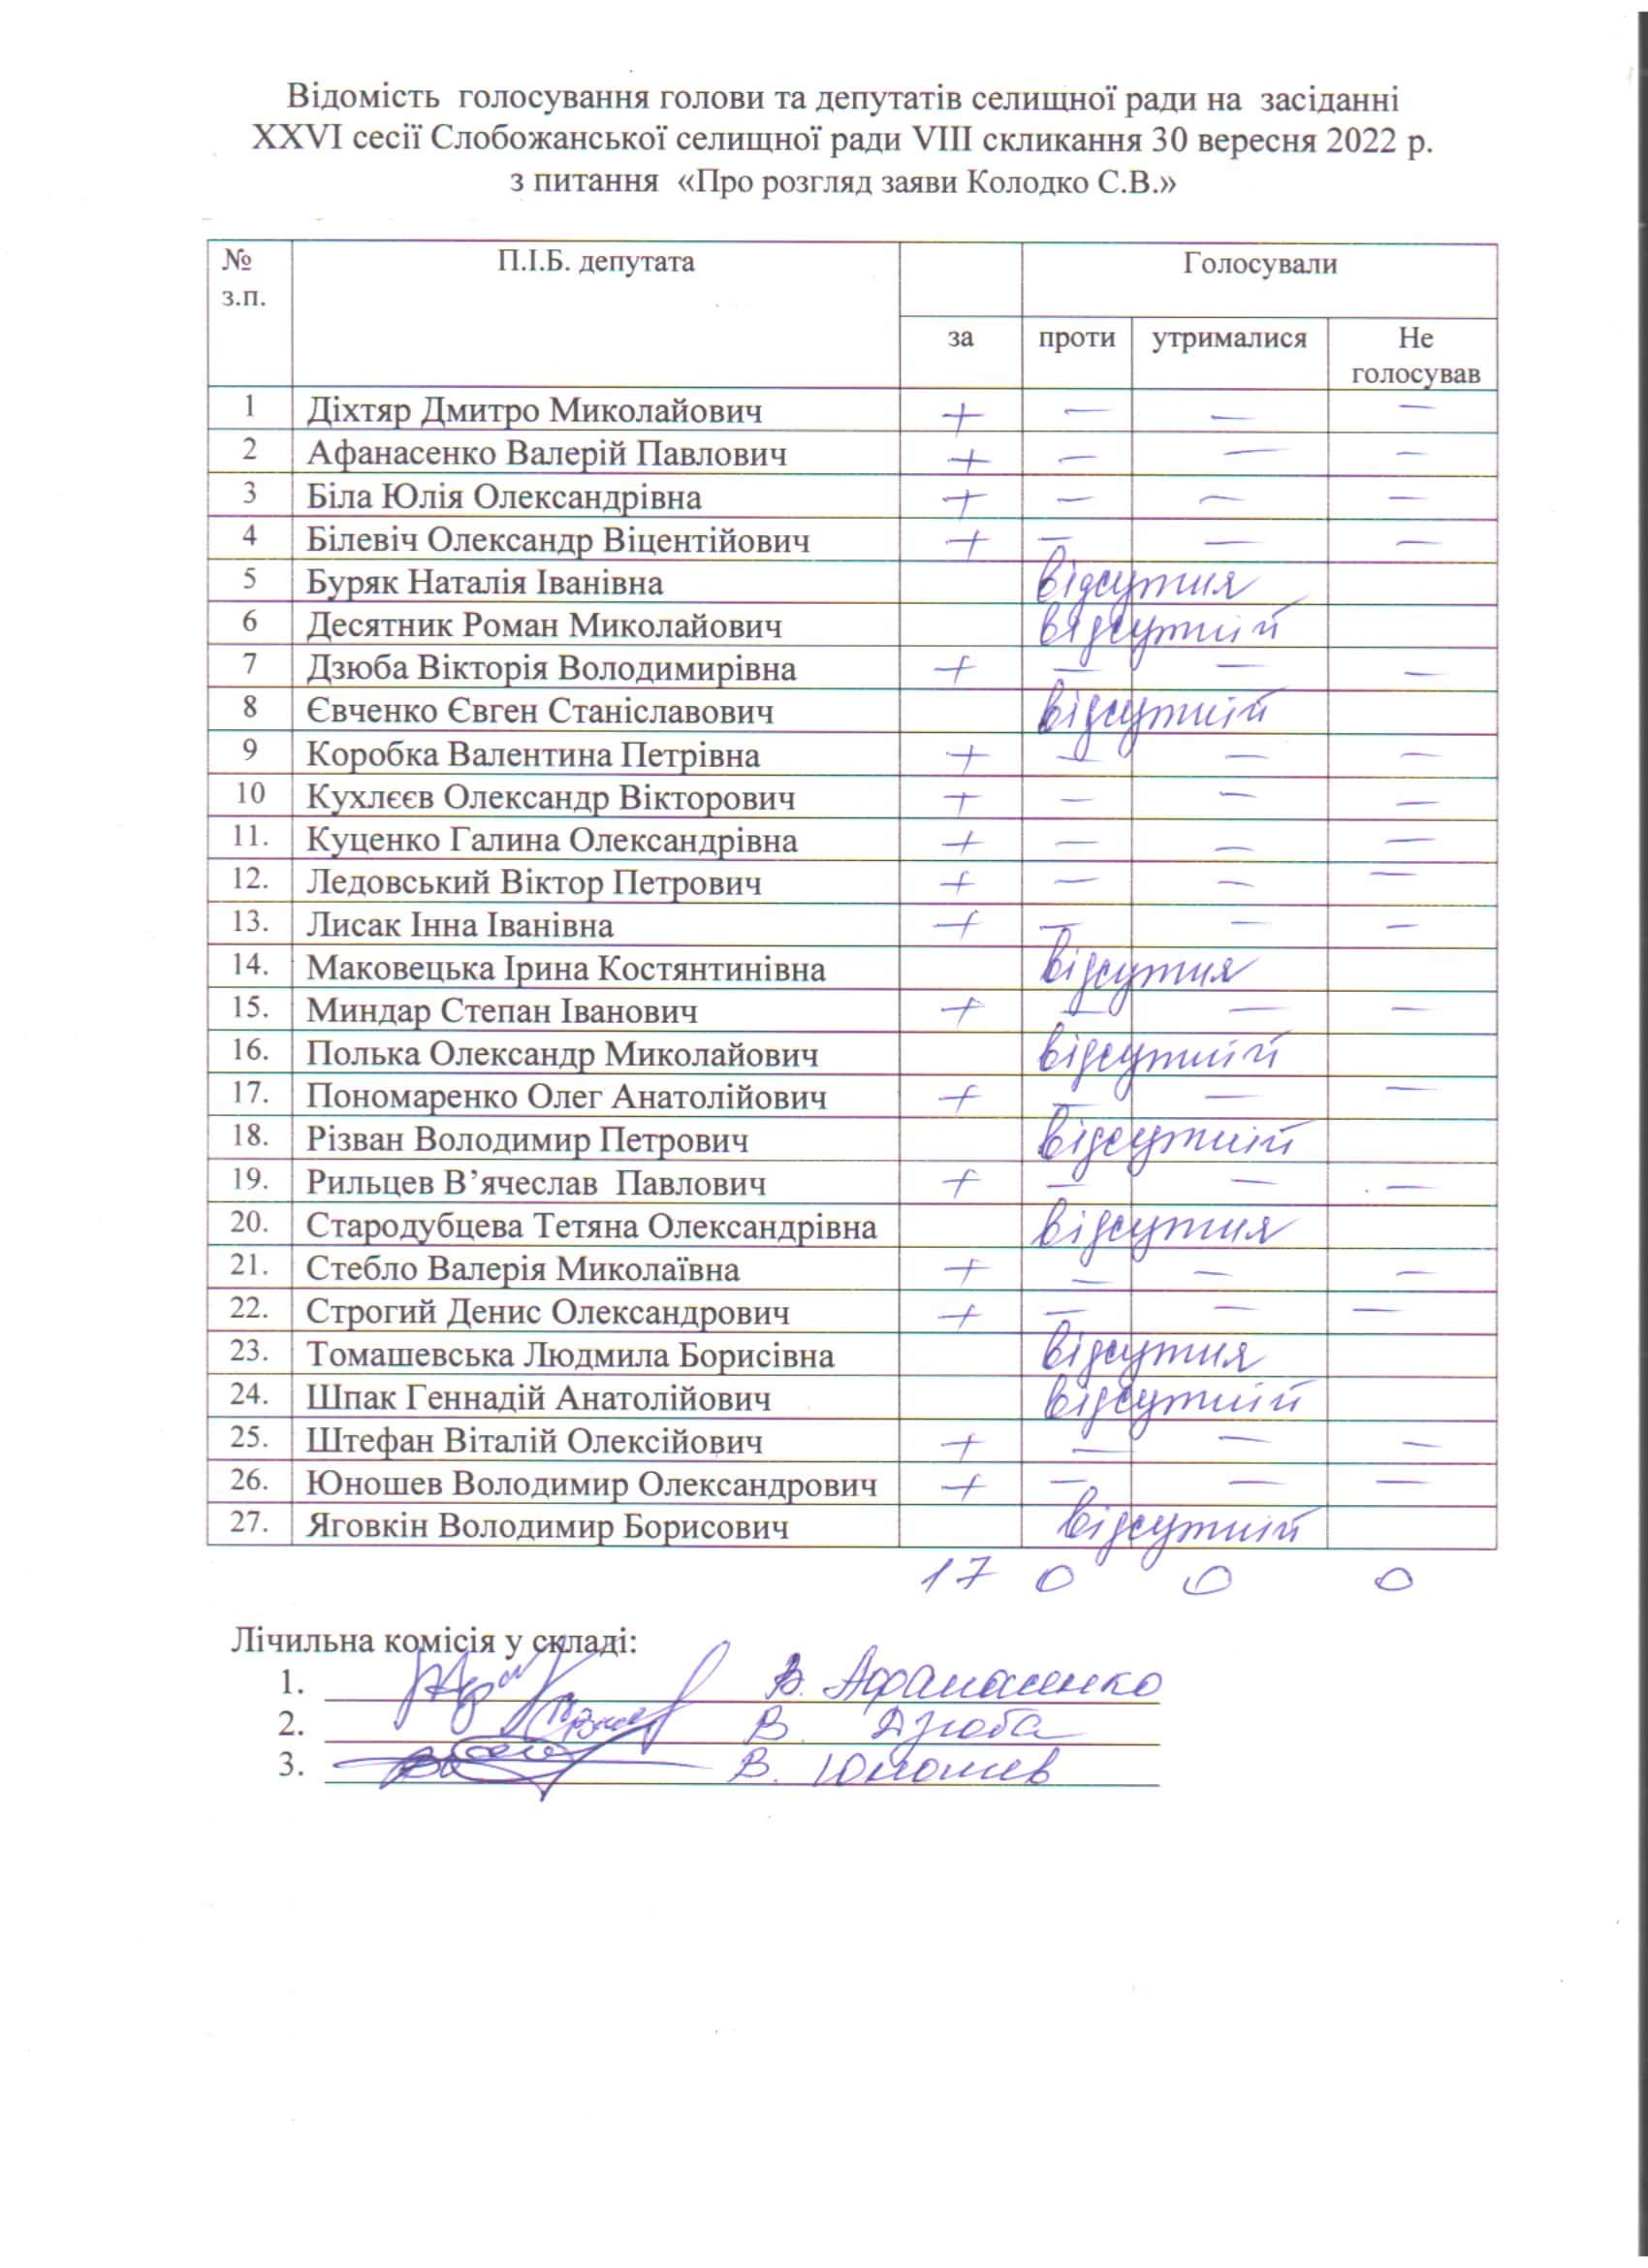 Відомість голосування голови та депутатів селищної ради на засіданні
XXVI сесії Слобожанської селищної ради VIII скликання 30 вересня 2022 р.
з питання «Про розгляд заяви Колодко С.В.»
№ з.п. П.І.Б. депутата Голосували
за проти утрималися Не голосував
1 Діхтяр Дмитро Миколайович + — — —
2 Афанасенко Валерій Павлович + — — —
3 Біла Юлія Олександрівна + — — —
4 Білевіч Олександр Віцентійович + — — —
5 Буряк Наталія Іванівна відсутня
6 Десятник Роман Миколайович відсутній
7 Дзюба Вікторія Володимирівна + — — —
8 Євченко Євген Станіславович відсутній
9 Коробка Валентина Петрівна + — — —
10 Кухлєєв Олександр Вікторович + — — —
11. Куценко Галина Олександрівна + — — —
12. Ледовський Віктор Петрович + — — —
13. Лисак Інна Іванівна + — — —
14. Маковецька Ірина Костянтинівна відсутня
15. Миндар Степан Іванович + — — —
16. Полька Олександр Миколайович відсутній
17. Пономаренко Олег Анатолійович + — — —
18. Різван Володимир Петрович відсутній
19. Рильцев В’ячеслав Павлович + — — —
20. Стародубцева Тетяна Олександрівна відсутня
21. Стебло Валерія Миколаївна + — — —
22. Строгий Денис Олександрович + — — —
23. Томашевська Людмила Борисівна відсутня
24. Шпак Геннадій Анатолійович відсутній
25. Штефан Віталій Олексійович + — — —
26. Юношев Володимир Олександрович + — — —
27. Яговкін Володимир Борисович відсутній
17 0 0 0
Лічильна комісія у складі:
1. В. Афанасенко
2. В. Дзюба
3. В. Юношев